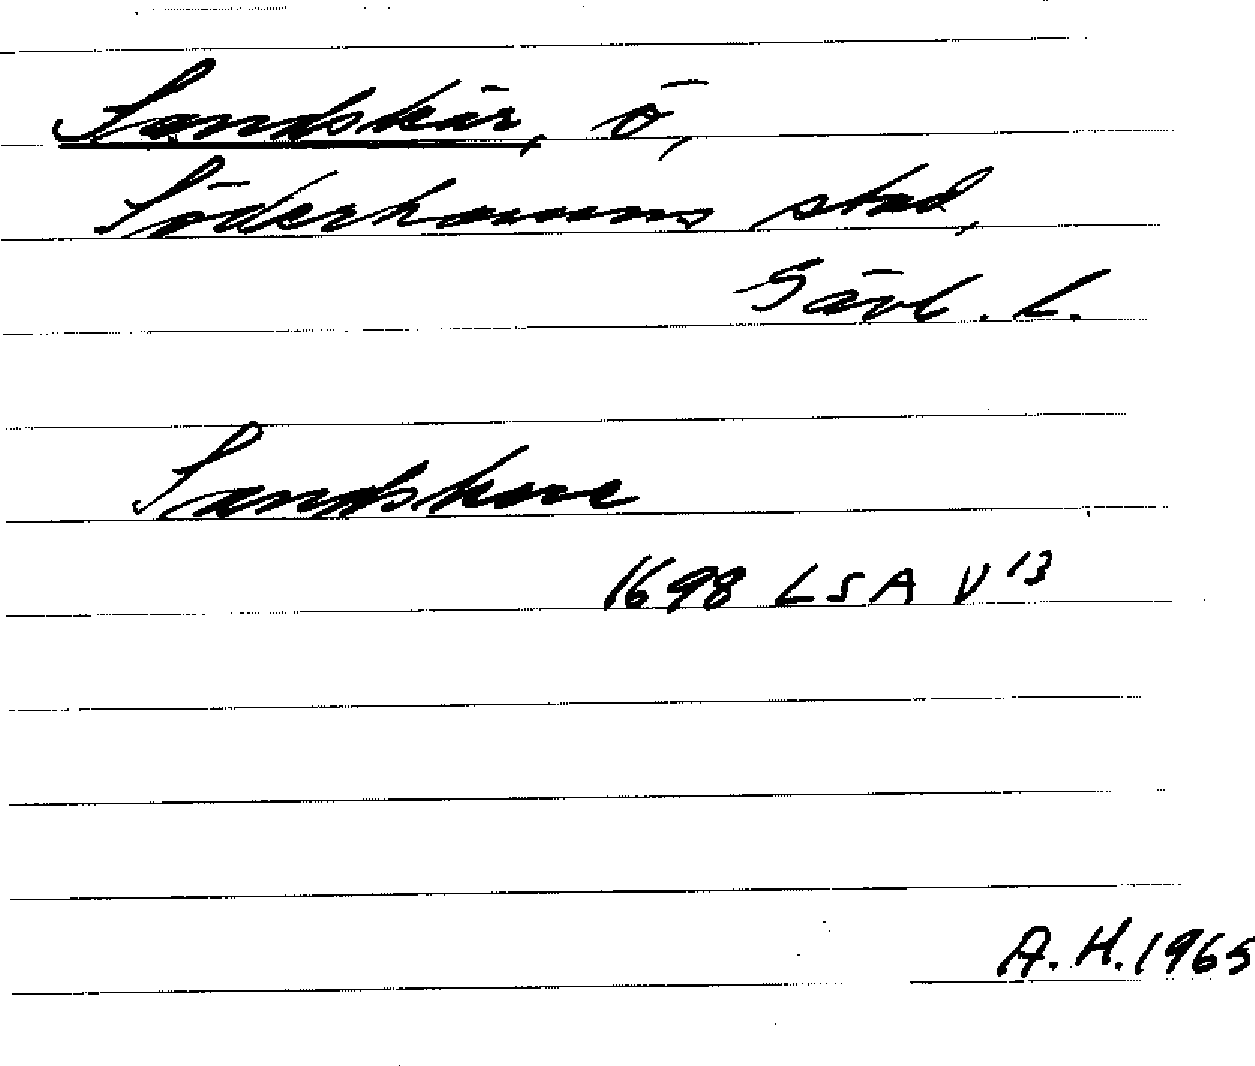 Sandskär, ö,
Söderhamns stad,
Gävl. l.
Sandskare
1698 LSA V 13
A.H. 1965